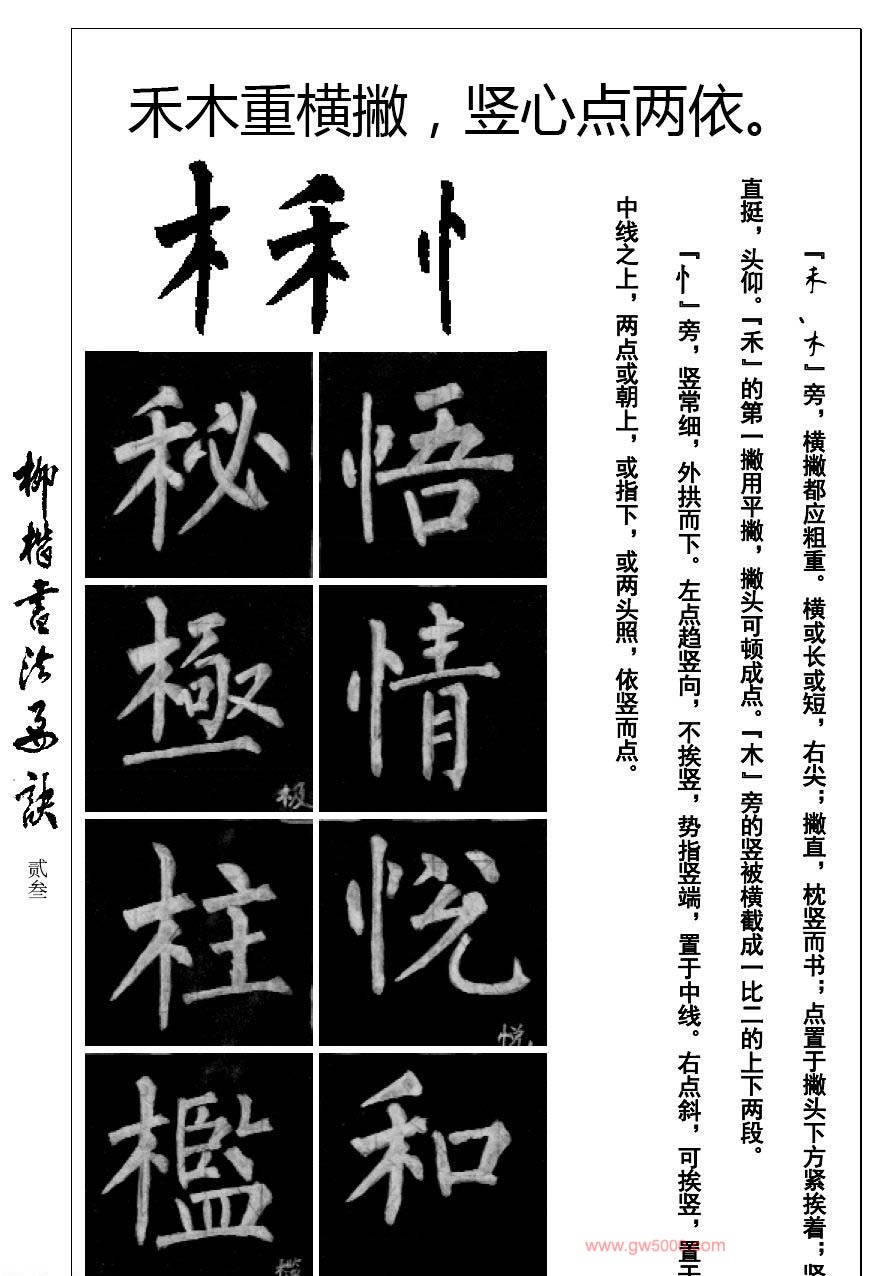 禾木重横撇，竖心点两依。
木禾忄
『禾、木』旁，横撇都应粗重。横或长或短，右尖；撇直，枕竖而书；点置于撇头下方紧挨着；竖
直挺，头仰。『禾』的第一撇用平撇，撇头可顿成点。『木』旁的竖被横截成一比二的上下两段。
『忄』旁，竖常细，外拱而下。左点趋竖向，不挨竖，势指竖端，置于中线。右点斜，可挨竖，置于
中线之上，两点或朝上，或指下，或两头照，依竖而点。
秘悟
極情
极
柱悦
悦
檻和
槛
柳楷书法要诀
贰叁
www.gw5000.com